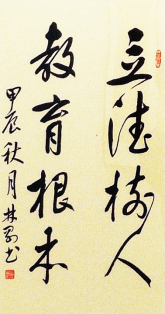 立德树人
教育根本
甲辰秋月林勇书